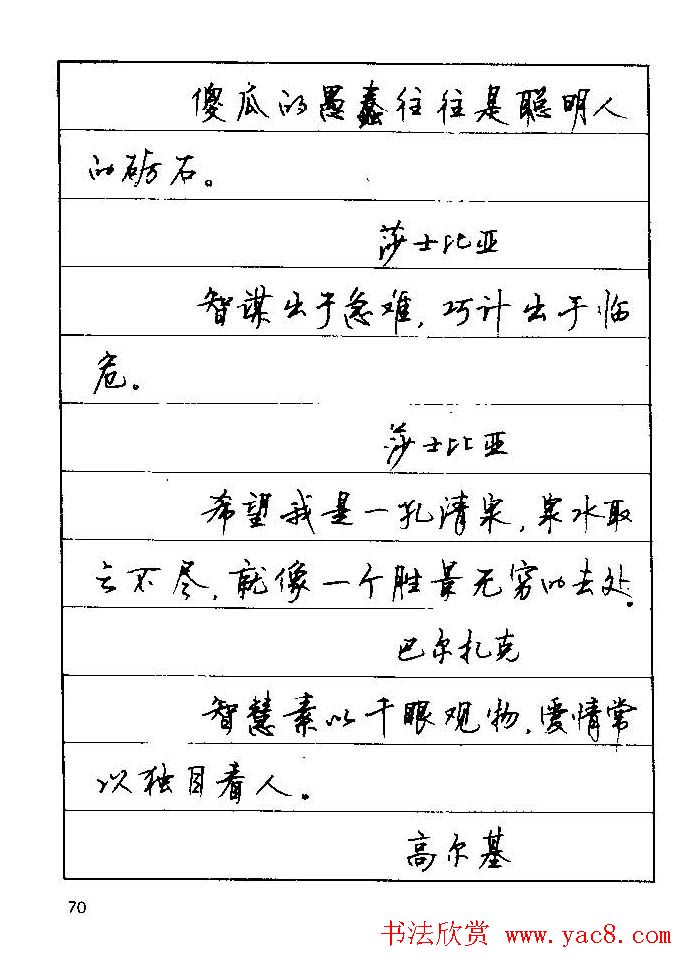 傻瓜的愚蠢往往是聪明人
的砺石。
莎士比亚
智谋出于急难，巧计出于临
危。
莎士比亚
希望我是一孔清泉，泉水取
之不尽，就像一个胜景无穷的去处。
巴尔扎克
智慧素以千眼观物，爱情常
以独目看人。
高尔基
70
书法欣赏 www.yac8.com